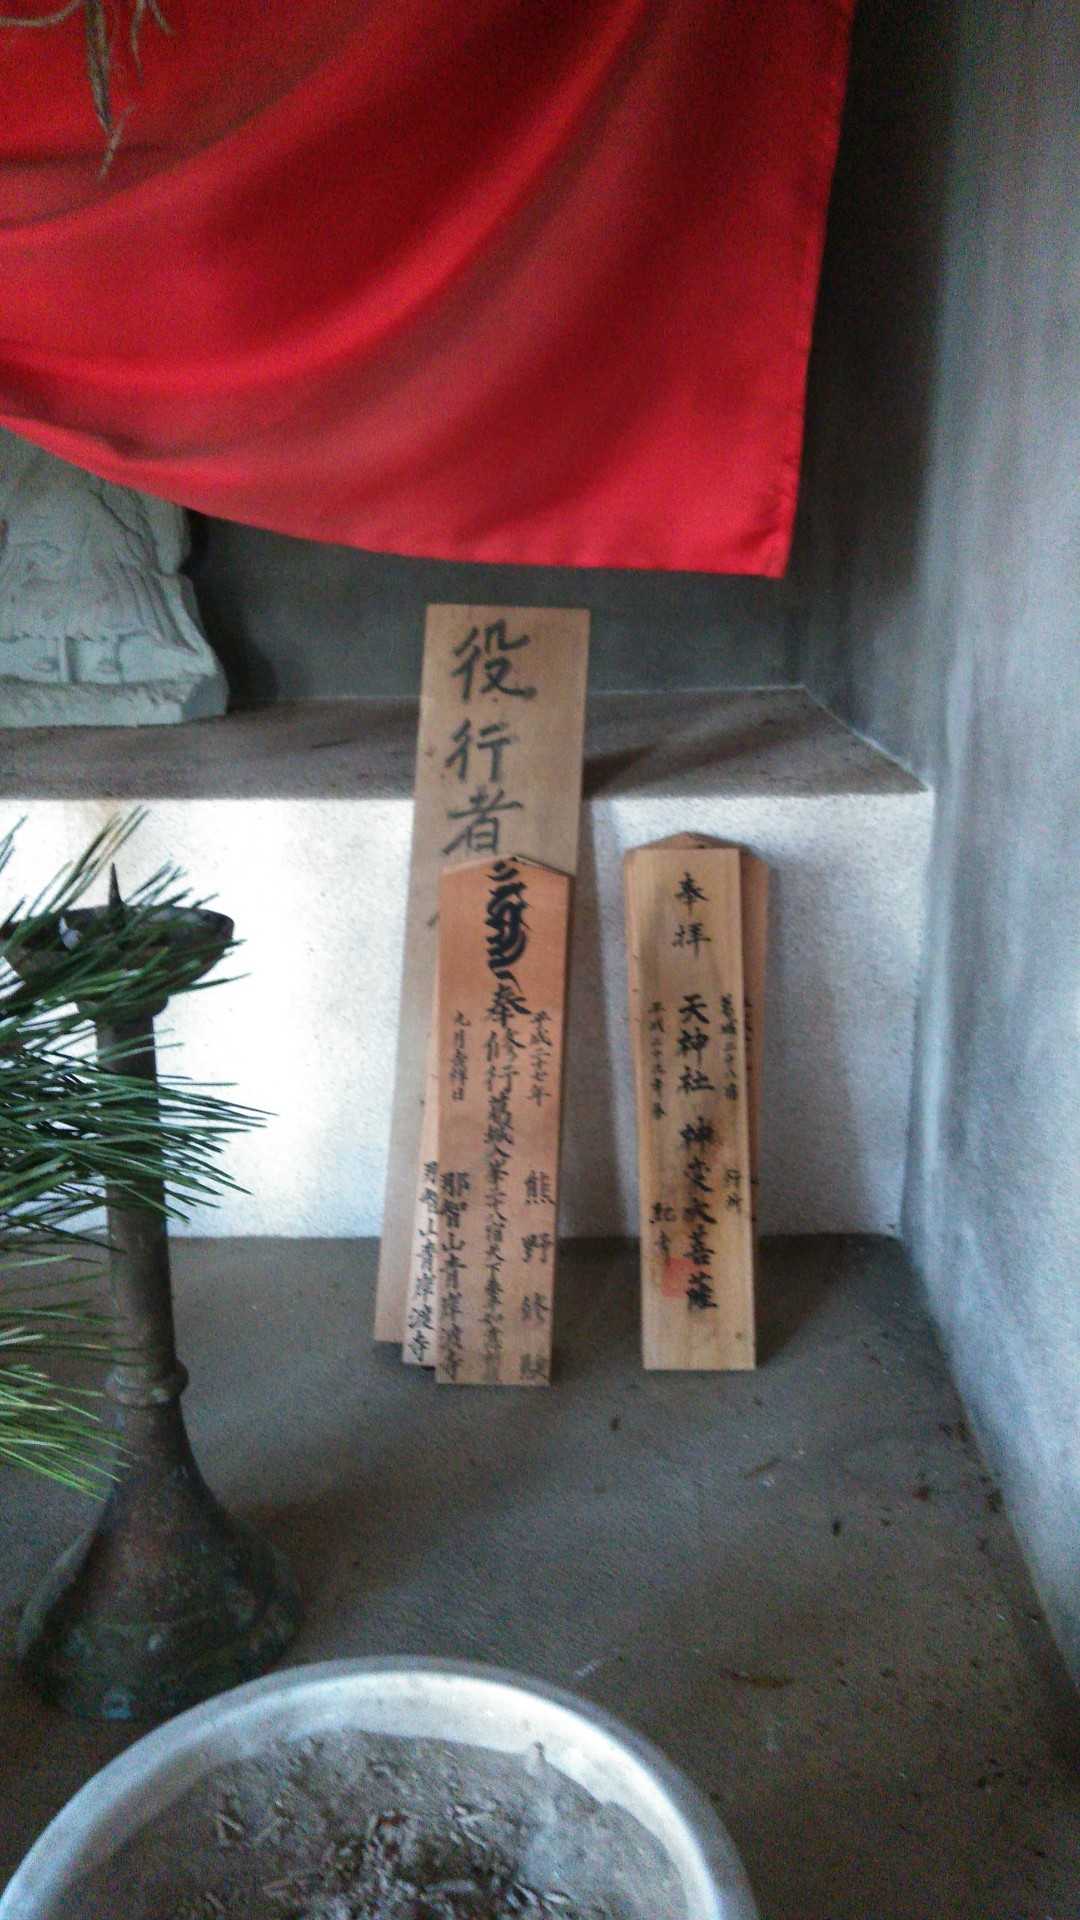 役行者
平成二十七年
熊野修験
奉修行葛城入峯二十八宿天下泰平
九月吉祥日
那智山青岸渡寺
那智山青岸渡寺
奉拝
葛城二十八宿
行所
天神社 神変大菩薩
平成二十九年